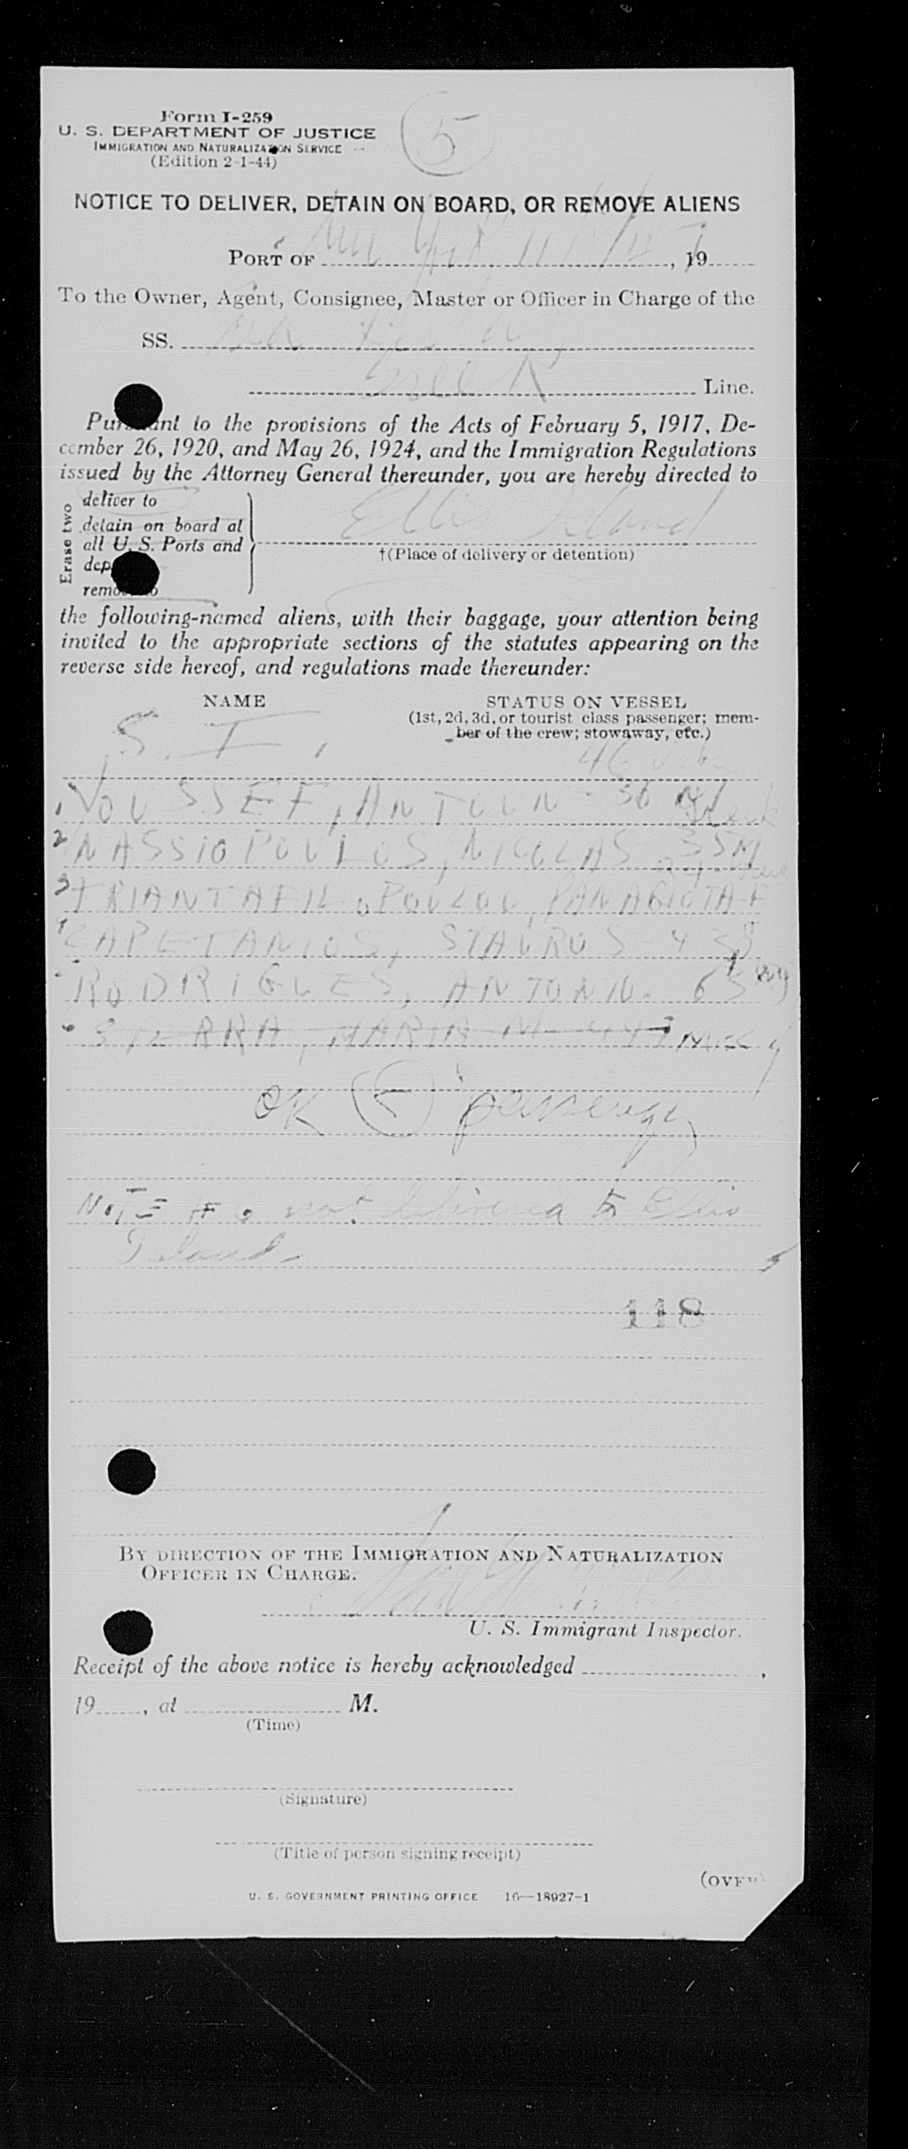 Form I-259
5
U. S. DEPARTMENT OF JUSTICE
IMMIGRATION AND NATURALIZATION SERVICE
(Edition 2-1-44)
NOTICE TO DELIVER, DETAIN ON BOARD, OR REMOVE ALIENS
PORT OF New York 11/ /47, 19
To the Owner, Agent, Consignee, Master or Officer in Charge of the
SS.
Line.
Pursuant to the provisions of the Acts of February 5, 1917, De-
cember 26, 1920, and May 26, 1924, and the Immigration Regulations
issued by the Attorney General thereunder, you are hereby directed to
Erase two
deliver to
detain on board at
all U. S. Ports and
dep
remove to
Ellis Island
†(Place of delivery or detention)
the following-named aliens, with their baggage, your attention being
invited to the appropriate sections of the statutes appearing on the
reverse side hereof, and regulations made thereunder:
NAME
STATUS ON VESSEL
(1st, 2d, 3d, or tourist class passenger; mem-
ber of the crew; stowaway, etc.)
S. I.
1 YOUSSEF, ANTOUN - 36 M
2 NASSIOPOULOS, NICOLAS 35 M
3 TRIANTAFILOPOULOU, PANAGIOTA F
CAPETANIOS, STAVROS - 43
RODRIGUES, ANTONIO. 63
SIERRA, MARIA M
OK 5 passengers
NOTE # 6 not delivered to Ellis
Island.
118
BY DIRECTION OF THE IMMIGRATION AND NATURALIZATION
OFFICER IN CHARGE.
U. S. Immigrant Inspector.
Receipt of the above notice is hereby acknowledged ,
19 , at M.
(Time)
(Signature)
(Title of person signing receipt)
(OVER)
U. S. GOVERNMENT PRINTING OFFICE 16—18927-1